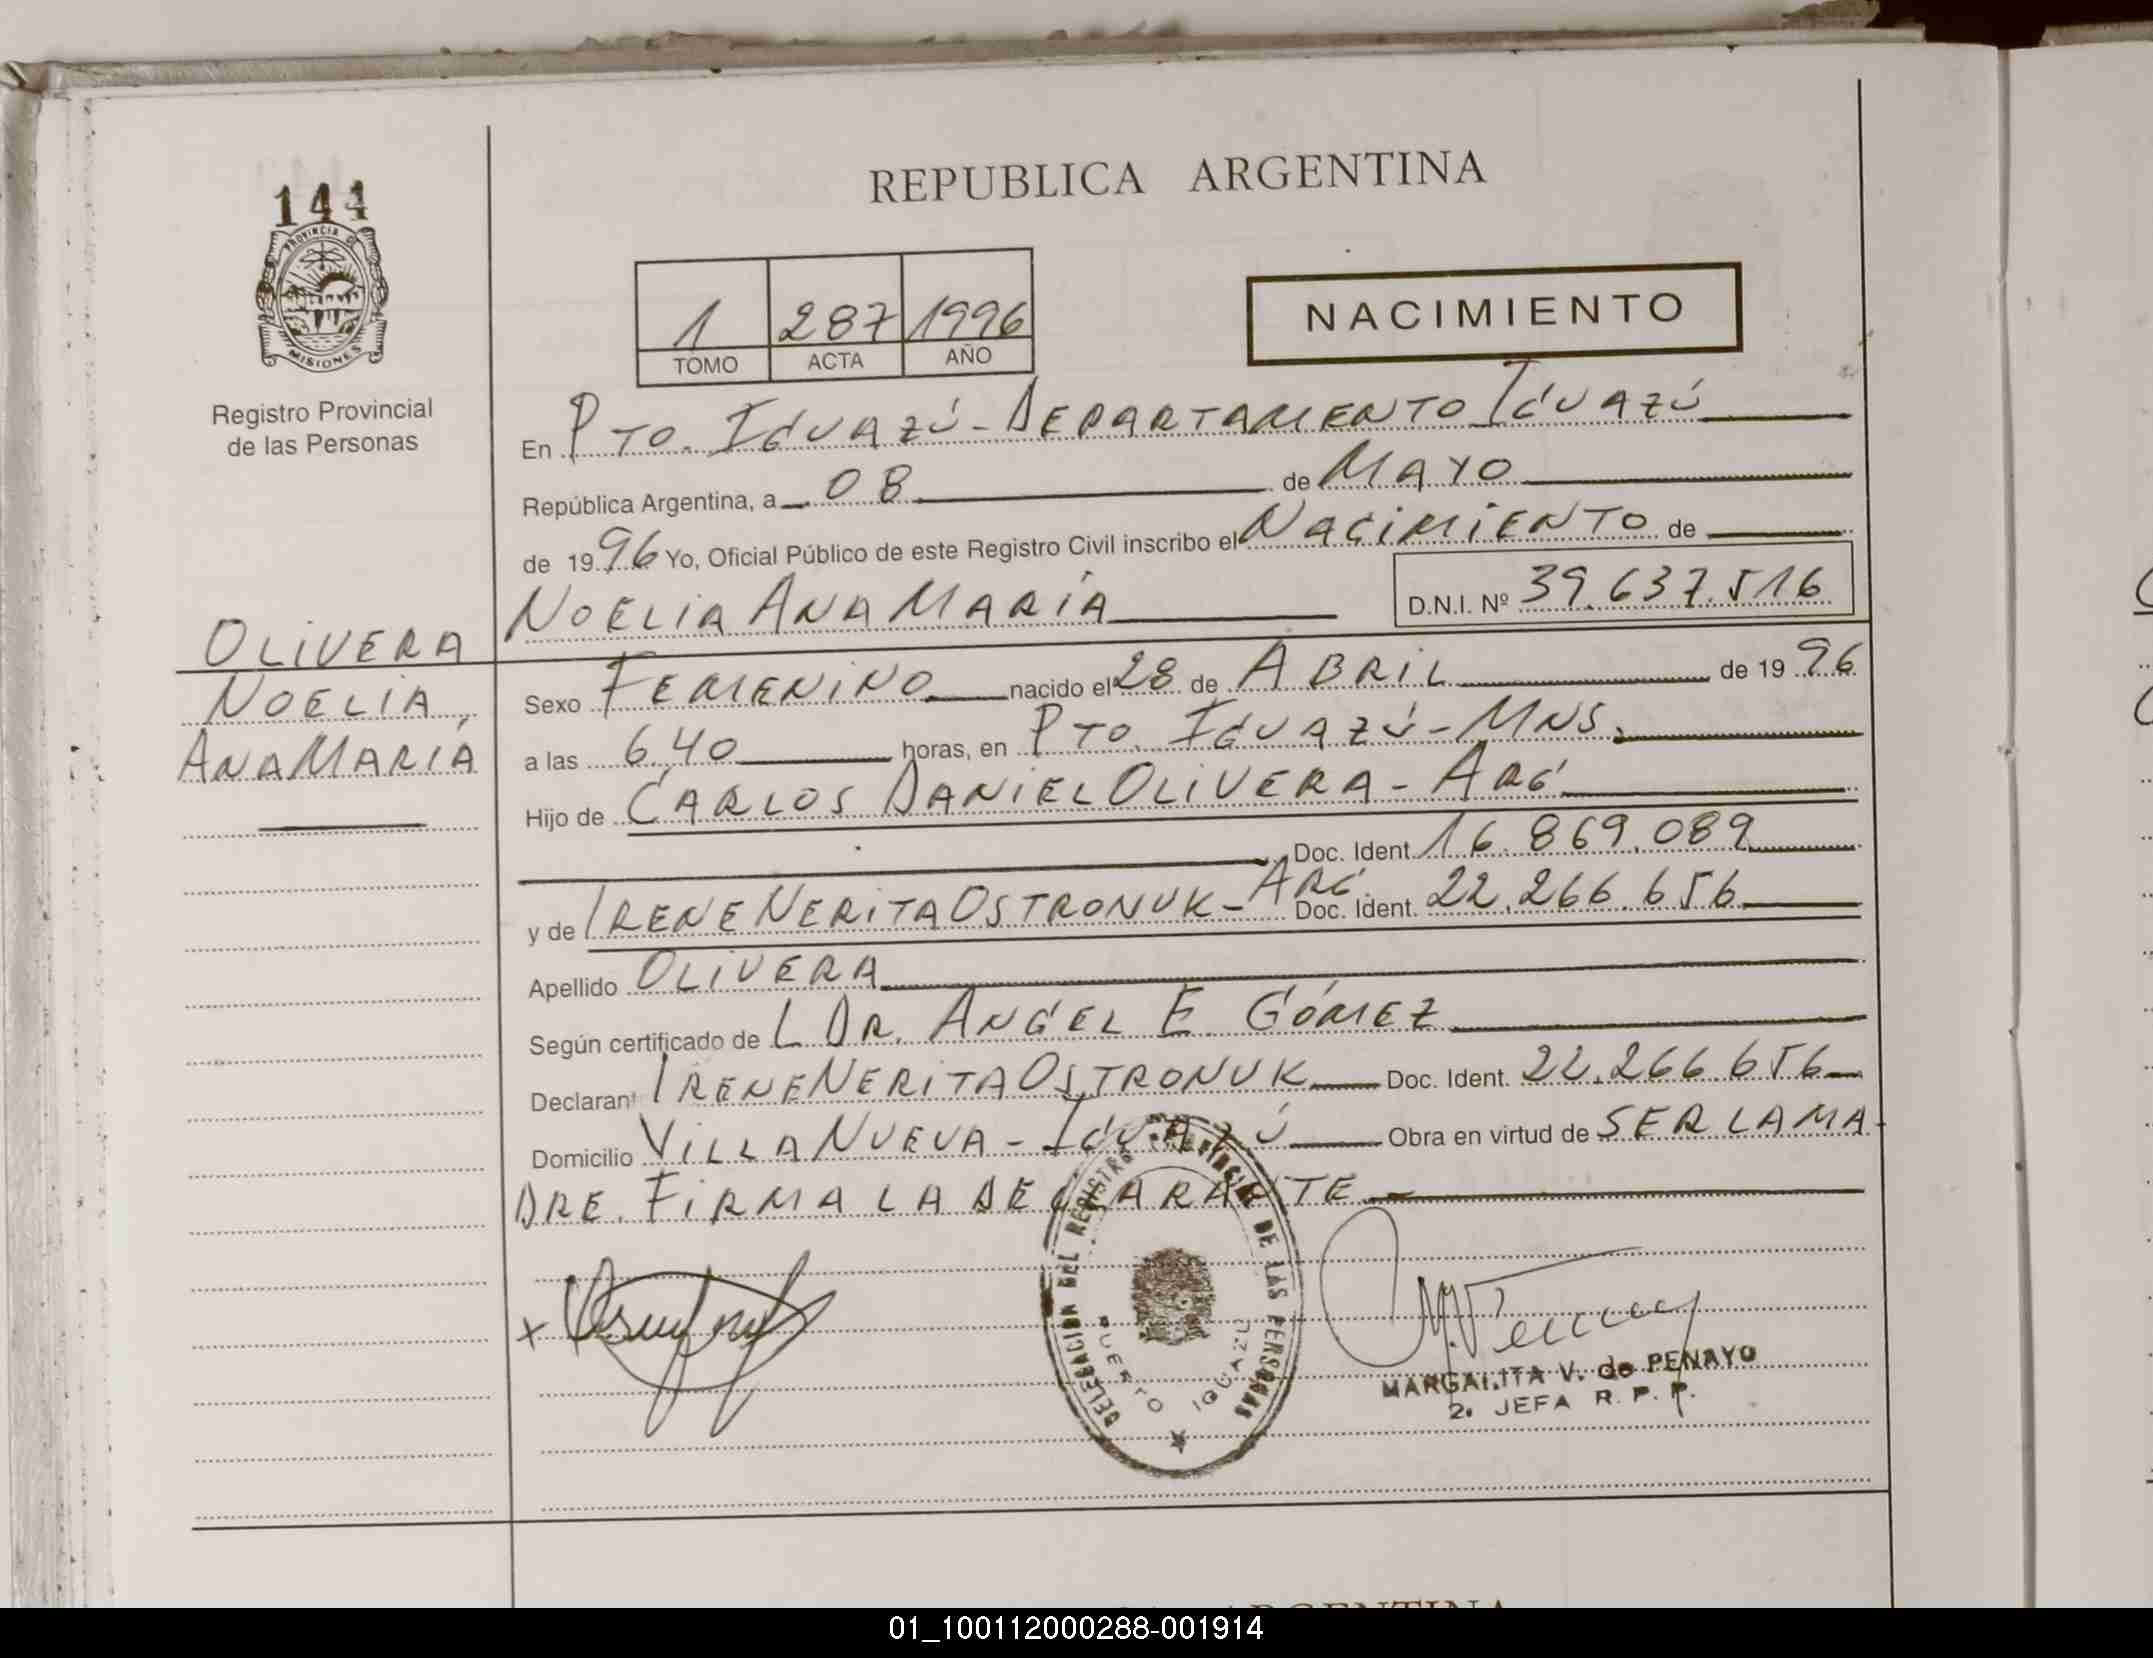 144
PROVINCIA DE
MISIONES
Registro Provincial
de las Personas
REPUBLICA ARGENTINA
1 287 1996
TOMO ACTA AÑO
NACIMIENTO
En PTO. IGUAZÚ - DEPARTAMENTO IGUAZÚ
República Argentina, a 08 de MAYO
de 1996 Yo, Oficial Público de este Registro Civil inscribo el NACIMIENTO de
NOELIA ANA MARÍA D.N.I. Nº 39.637.516
OLIVERA
NOELIA,
ANA MARÍA
Sexo FEMENINO nacido el 28 de ABRIL de 1996
a las 6.40 horas, en PTO. IGUAZÚ - MNS.
Hijo de CARLOS DANIEL OLIVERA - ARG.
Doc. Ident. 16.869.089
y de IRENE NERITA OSTRONUK - ARG. Doc. Ident. 22.266.656
Apellido OLIVERA
Según certificado de L DR. ANGEL E. GÓMEZ
Declarant IRENE NERITA OSTRONUK Doc. Ident. 22.266.656
Domicilio VILLA NUEVA - IGUAZÚ Obra en virtud de SER LA MA-
DRE. FIRMA LA DECLARANTE
X
DELEGACION DEL REGISTRO PROVINCIAL DE LAS PERSONAS
PUERTO IGUAZU
MARGALITA V. de PENAYO
2. JEFA R. P. P.
01_100112000288-001914